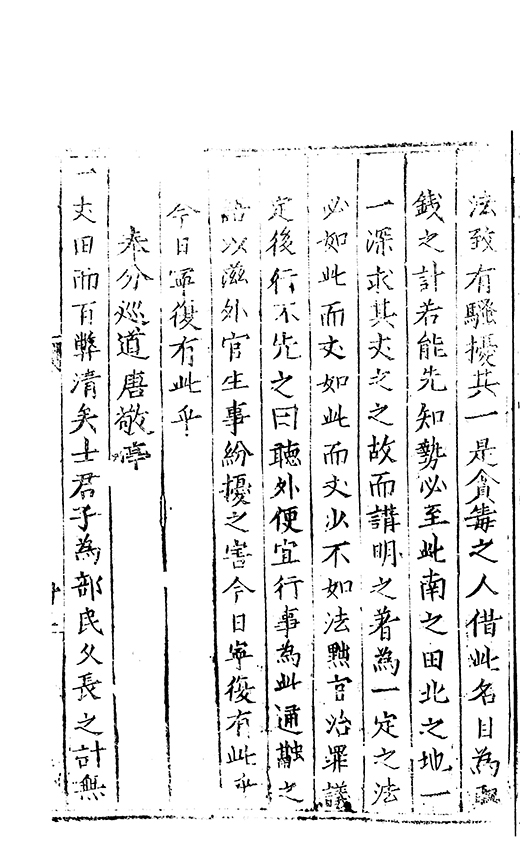 法致有騷擾其一是貪毒之人借此名目為取
錢之計若能先知勢必至此南之田北之地一
一深求其丈之之故而講明之著為一定之法
必如此而丈如此而丈少不如法黜官治罪議
定後行不先之曰聽外便宜行事為此通融之
語以滋外官生事紛擾之害今日寧復有此乎
今日寧復有此乎
奉分巡道唐敬亭
一丈田而百弊清矣士君子為部民久長之計無